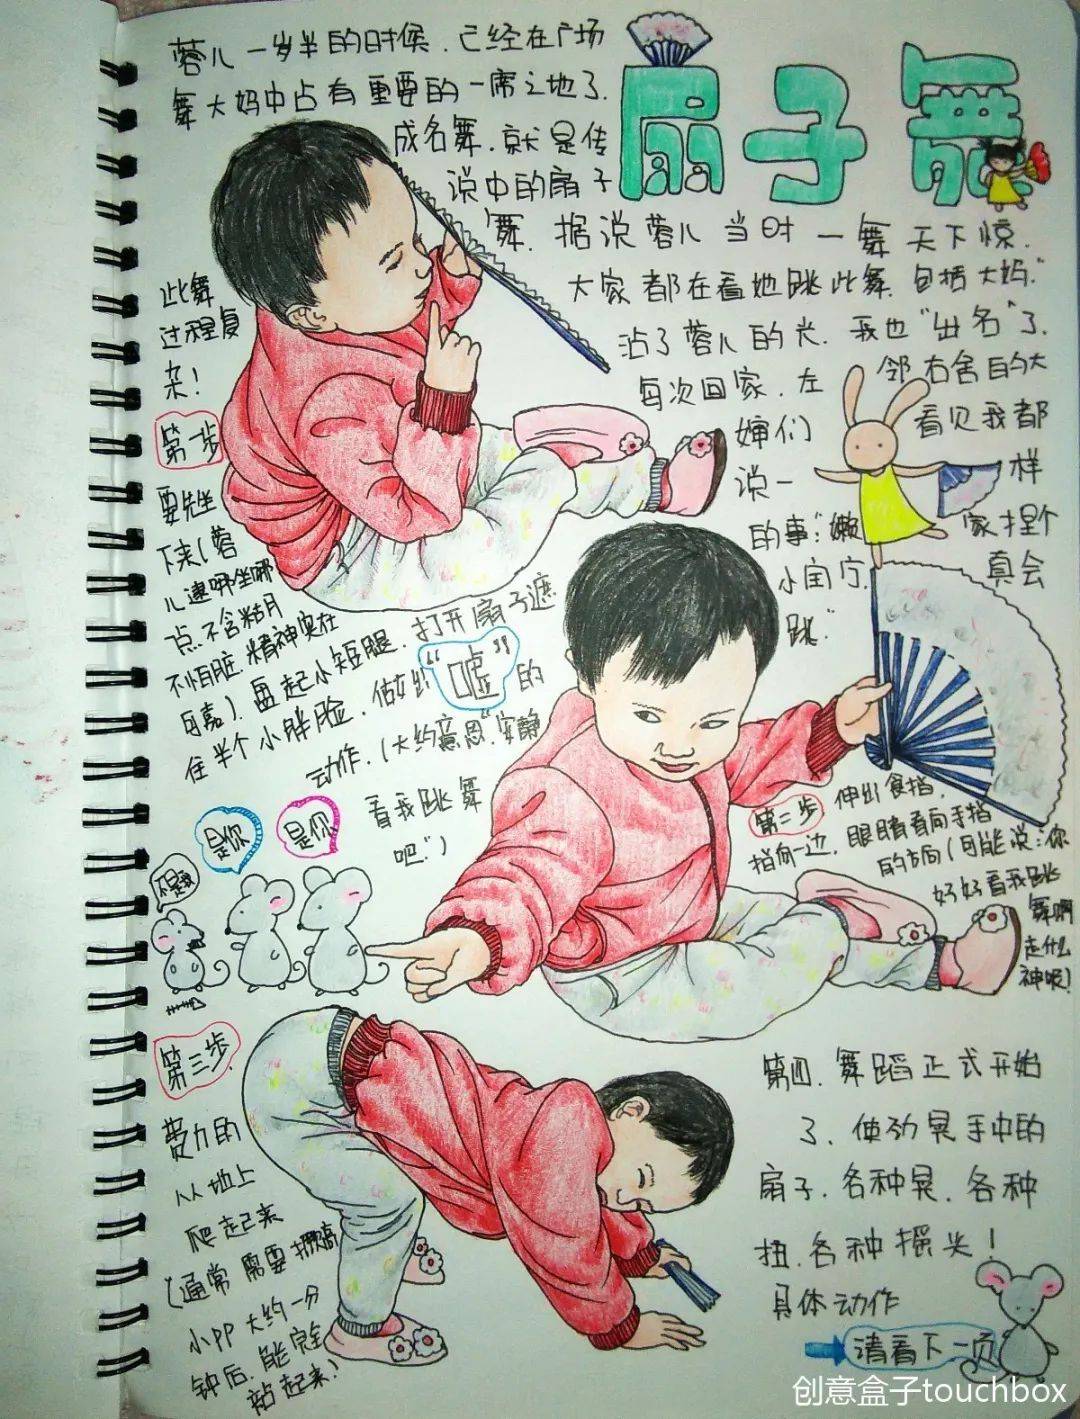 扇子舞
蓉儿一岁半的时候.已经在广场
舞大妈中占有重要的一席之地了.
成名舞.就是传
说中的扇子
舞.据说蓉儿当时一舞天下惊.
大家都在看她跳此舞.包括大妈."
沾了蓉儿的光.我也"出名"了.
每次回家.左邻右舍的大
婶们看见我都
说一样
的事:"嫩家捏个
小宝宁.真会
跳."
此舞
过程复
杂!
第一步
要先坐
下来(蓉
儿逮哪坐哪
点.不含粘月
不怕脏.精神实在
可嘉).盘起小短腿.打开扇子遮
住半个小胖脸.做出"嘘"的
动作.(大约意思"安静
看我跳舞
吧.")
第二步 伸出食指,
指向一边,眼睛看向手指
的方向(可能说:你
好好看我跳
舞啊
走什么
神呢!
不是我
是你
是你
第三步.
费力的
从地上
爬起来
(通常需要撅着
小PP大约一分
钟后.能完全
站起来!)
第四.舞蹈正式开始
了.使劲晃手中的
扇子.各种晃.各种
扭.各种摇头!
具体动作
请看下一页
创意盒子touchbox